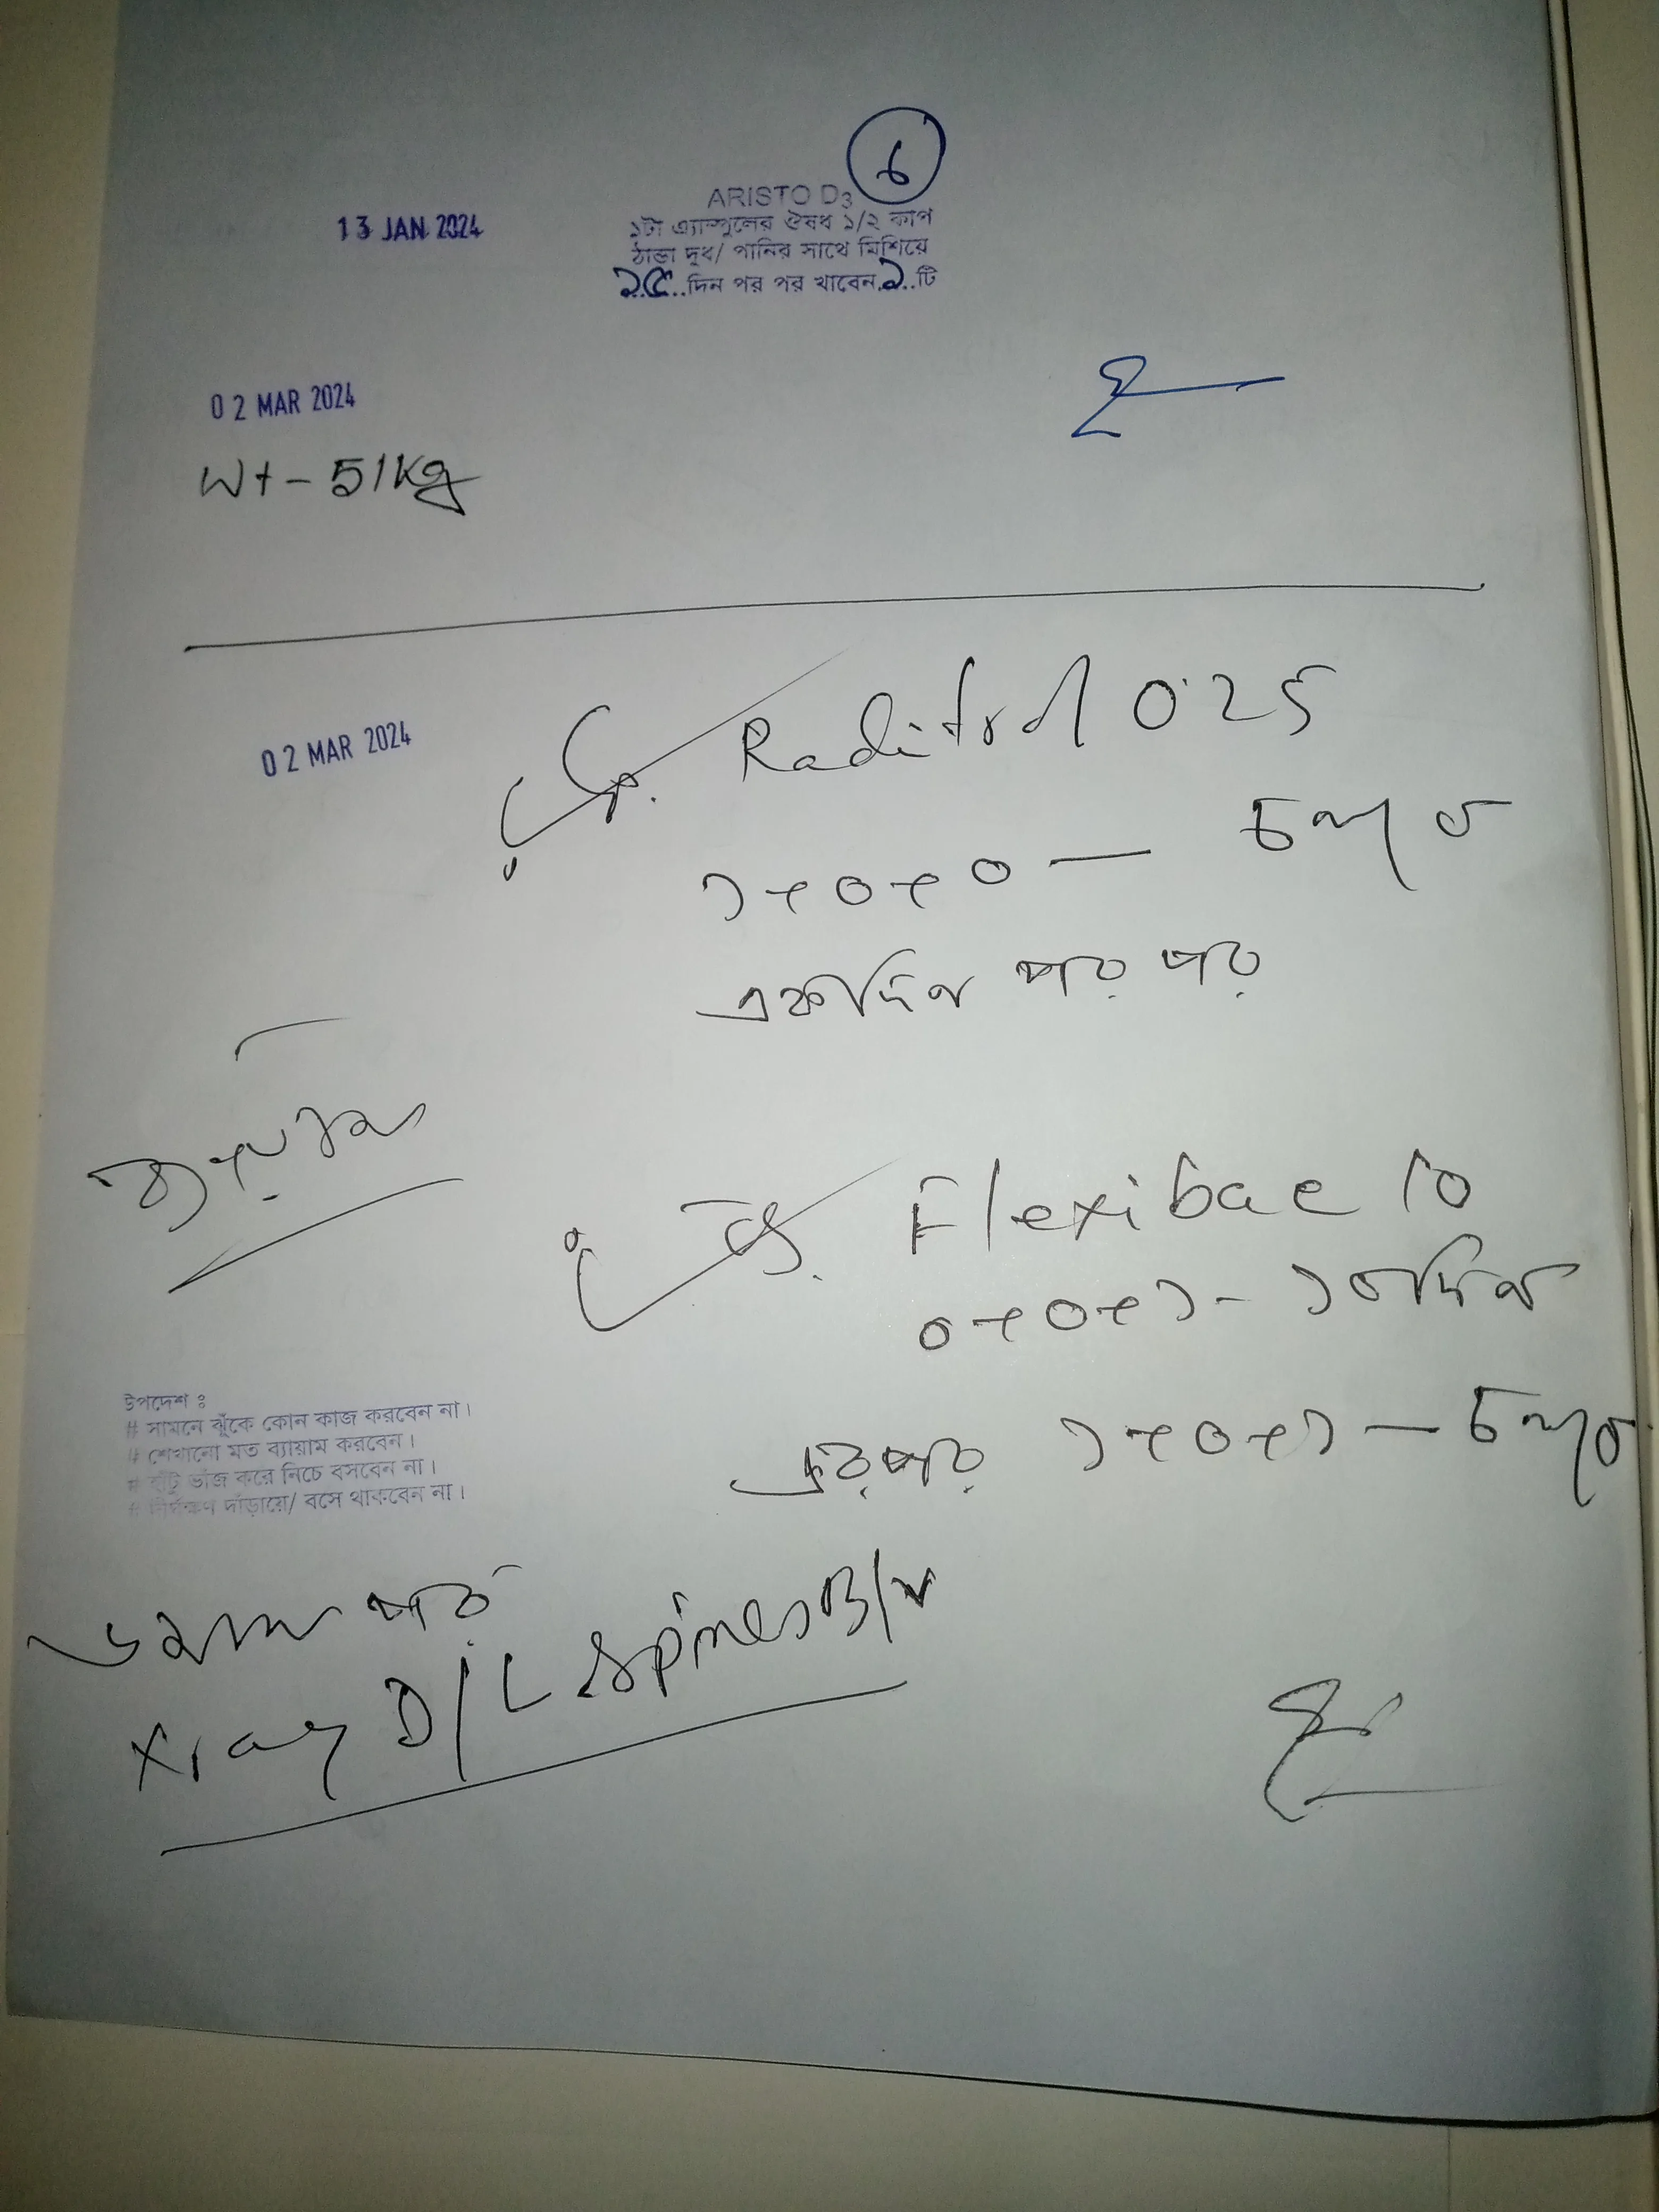 ৬
13 JAN 2024
ARISTO D3
১টা এ্যাম্পুলের ঔষধ ১/২ কাপ
ঠান্ডা দুধ/ পানির সাথে মিশিয়ে
১৫...দিন পর পর খাবেন.১..টি
02 MAR 2024
Wt - 51Kg
02 MAR 2024
Raditrol 0.25
১+০+০ — চলবে
একদিন পর পর
ব্যায়াম
Flexibac 10
০+০+১ - ১০দিন
এরপর ১+০+১ — চলবে
উপদেশ ঃ
# সামনে ঝুঁকে কোন কাজ করবেন না।
# শেখানো মত ব্যায়াম করবেন।
# হাঁটু ভাঁজ করে নিচে বসবেন না।
# দীর্ঘক্ষণ দাঁড়ায়ে/ বসে থাকবেন না।
৩মাস পর
Xray D/L Spines B/v